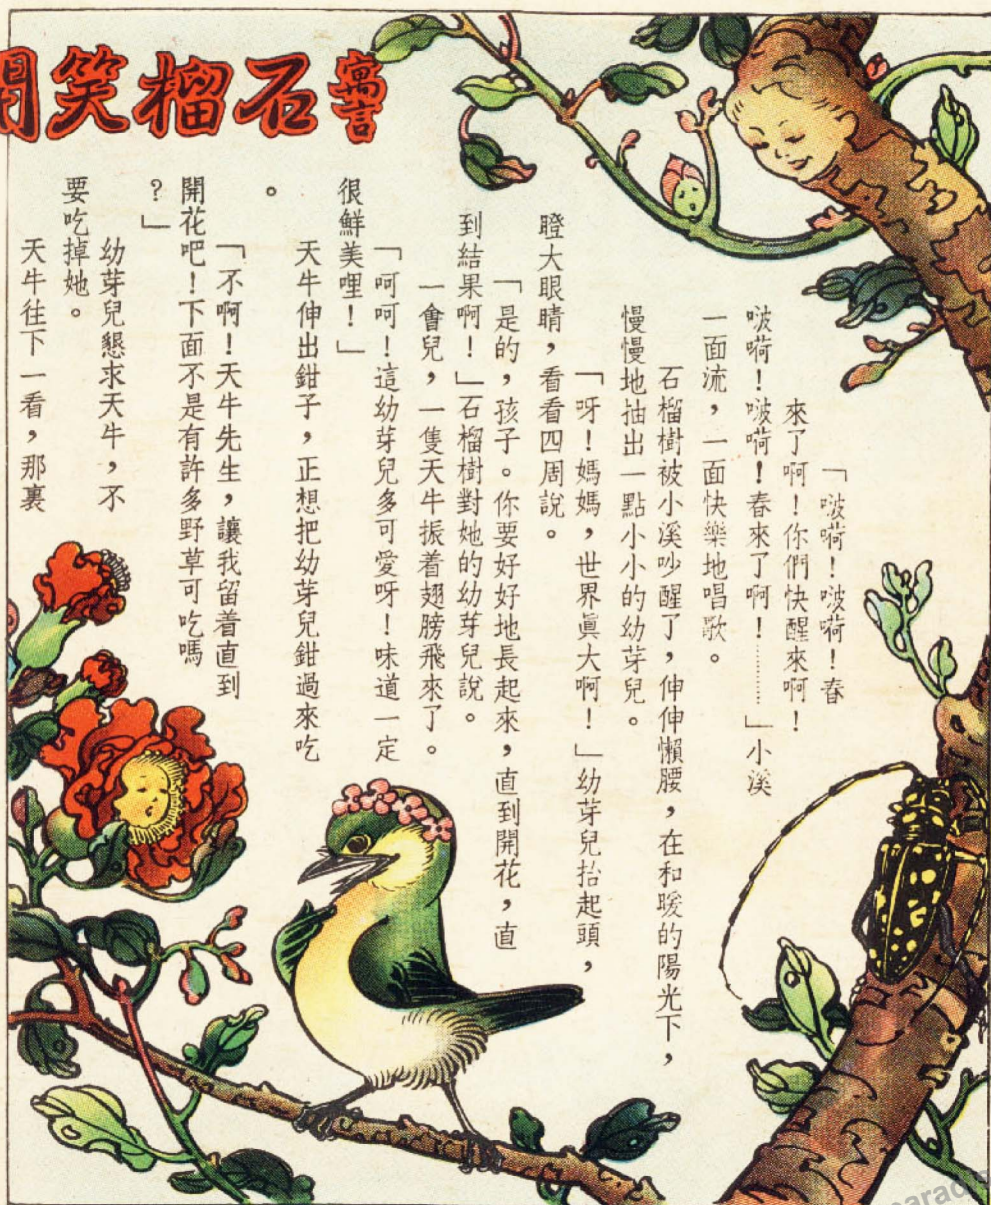 寓言
石榴笑開
「啵嗬！啵嗬！春
來了啊！你們快醒來啊！
啵嗬！啵嗬！春來了啊！………」小溪
一面流，一面快樂地唱歌。
石榴樹被小溪吵醒了，伸伸懶腰，在和暖的陽光下，
慢慢地抽出一點小小的幼芽兒。
「呀！媽媽，世界眞大啊！」幼芽兒抬起頭，
瞪大眼睛，看看四周說。
「是的，孩子。你要好好地長起來，直到開花，直
到結果啊！」石榴樹對她的幼芽兒說。
一會兒，一隻天牛振着翅膀飛來了。
「呵呵！這幼芽兒多可愛呀！味道一定
很鮮美哩！」
天牛伸出鉗子，正想把幼芽兒鉗過來吃
。
「不啊！天牛先生，讓我留着直到
開花吧！下面不是有許多野草可吃嗎
？」
幼芽兒懇求天牛，不
要吃掉她。
天牛往下一看，那裏